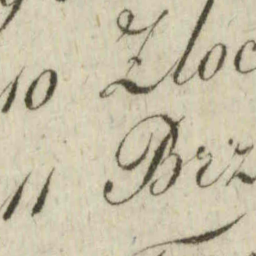 10 Zloc
11 Brz